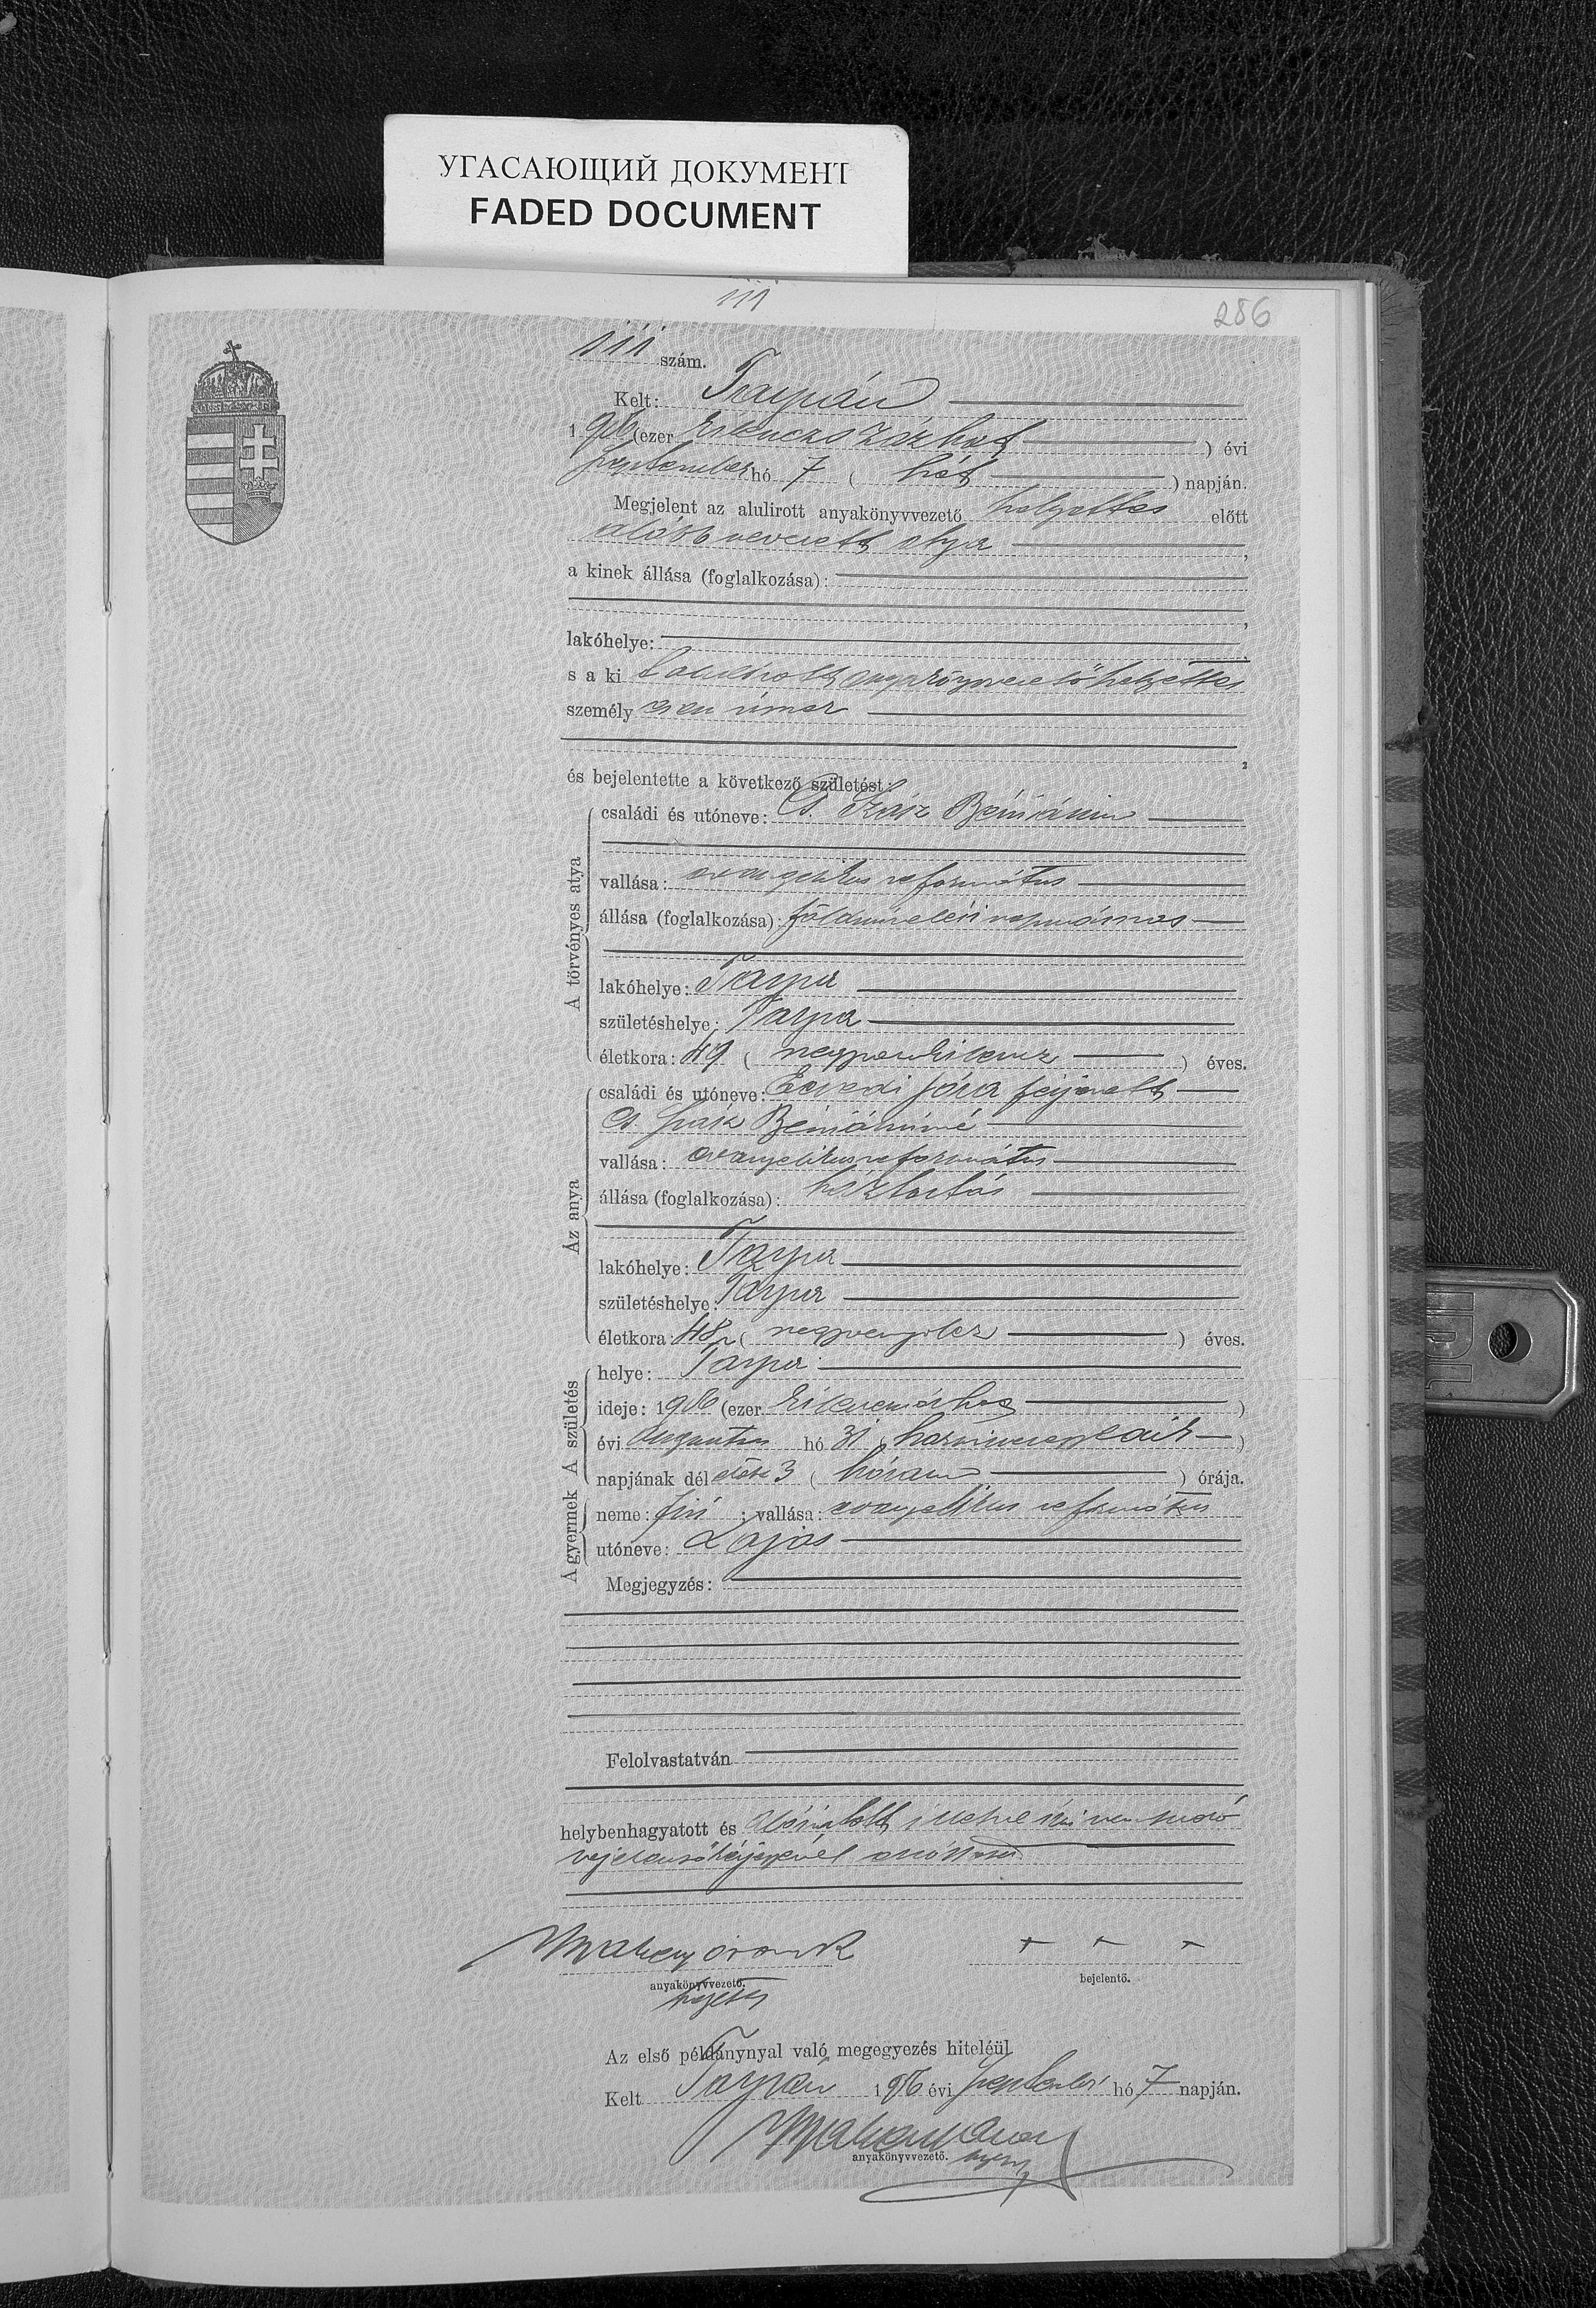 УГАСАЮЩИЙ ДОКУМЕНТ
FADED DOCUMENT
111
286
111 szám.
Kelt: Tarpán
1906 (ezer kilenczszázhat) évi
september hó 7 (hét) napján.
Megjelent az alulirott anyakönyvvezető helyettes előtt
alább nevezett atya,
a kinek állása (foglalkozása):
lakóhelye:
s a ki helyettes
személyesen ismer
és bejelentette a következő születést:
A törvényes atya
családi és utóneve: Cs. Szász Béniámin
vallása: evangelikus református
állása (foglalkozása): földmivelési napszámos
lakóhelye: Tarpa
születéshelye: Tarpa
életkora: 49 (negyvenkilencz) éves.
Az anya
családi és utóneve: Ecsedi Sára férjezett
Cs. Szász Béniáminné
vallása: evangelikus református
állása (foglalkozása): háztartás
lakóhelye: Tarpa
születéshelye: Tarpa
életkora: 48 (negyvennyolcz) éves.
A születés
helye: Tarpa
ideje: 1906 (ezer kilenczszázhat)
évi augusztus hó 31 (harminczegyedik)
napjának délelőtt 3 (három) órája.
A gyermek
neme: fiú; vallása: evangelikus református
utóneve: Lajos
Megjegyzés:
Felolvastatván
helybenhagyatott és aláiratott, illetve irni nem tudó
bejelentő kézjegyével
+ + +
anyakönyvvezető.
helyettes
bejelentő.
Az első példánynyal való megegyezés hiteléül
Kelt Tarpán 1906 évi september hó 7 napján.
anyakönyvvezető. helyettes